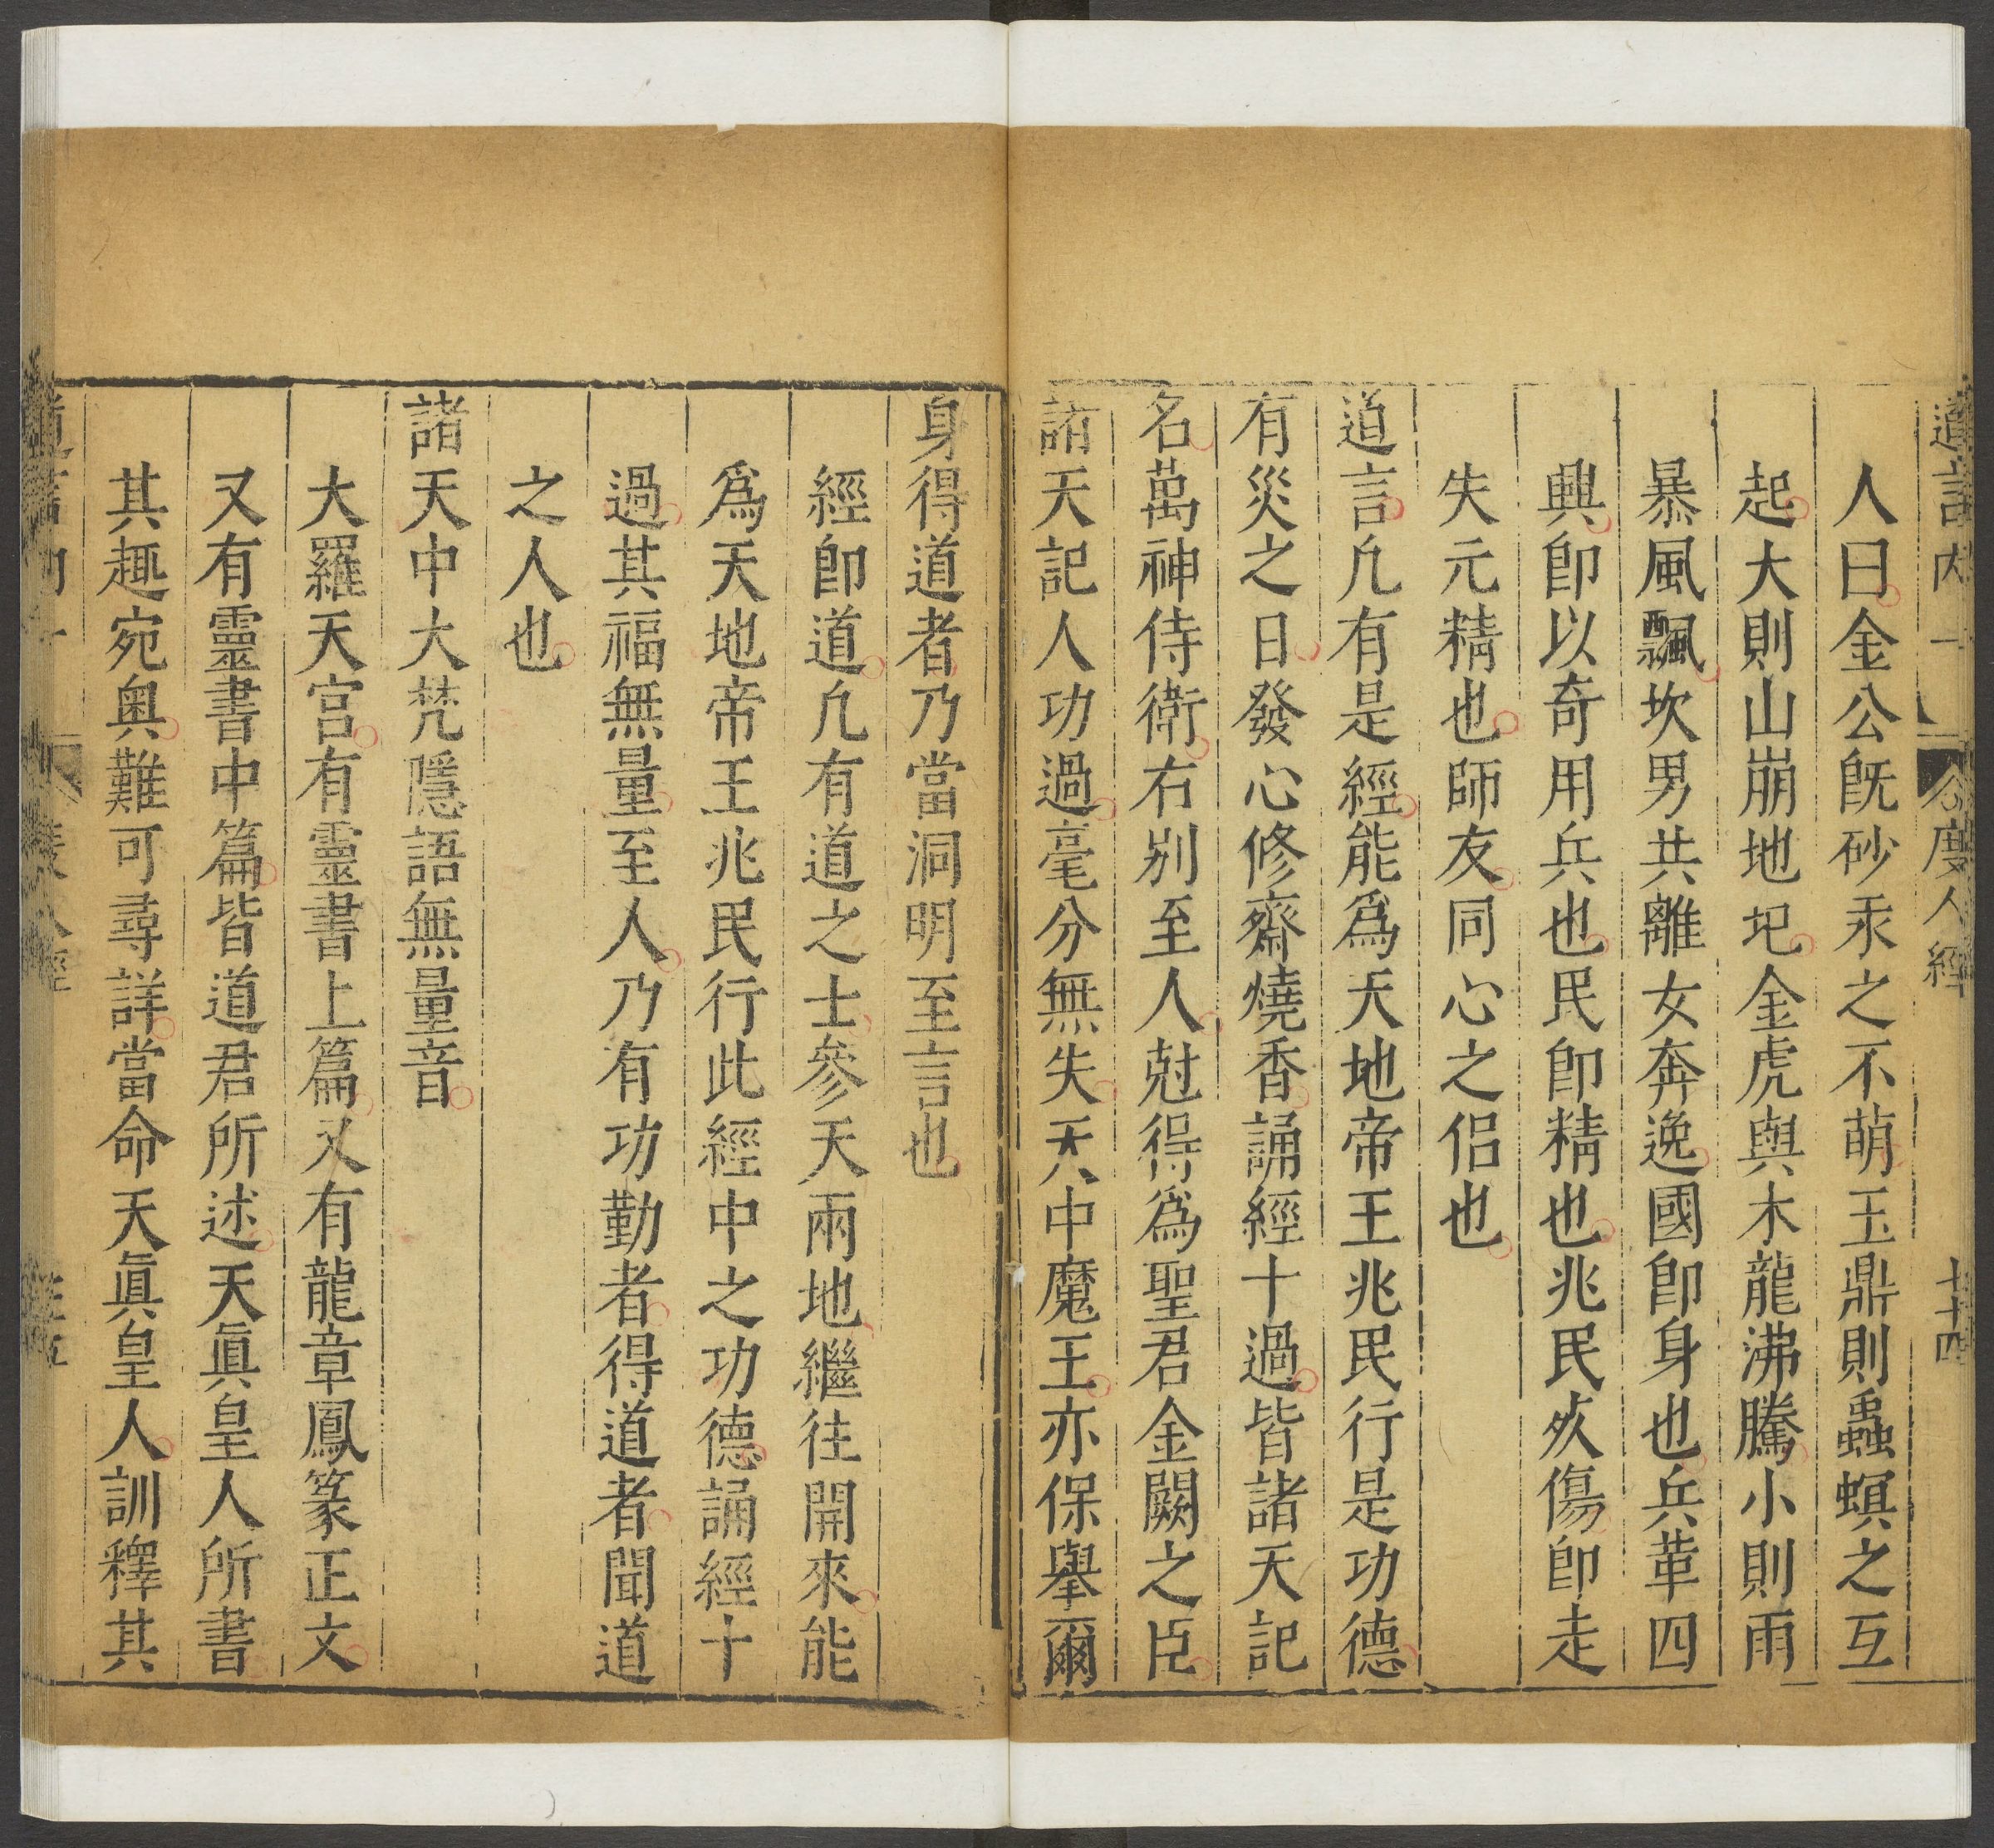 道言內 一 度人經 七十四
人曰金公旣砂汞之不萌玉鼎則蟲螟之互
起大則山崩地圯金虎與木龍沸騰小則雨
暴風飄坎男共離女奔逸國卽身也兵革四
興卽以奇用兵也民卽精也兆民疚傷卽走
失元精也師友同心之侶也
道言凡有是經能爲天地帝王兆民行是功德
有災之日發心修齋燒香誦經十過皆諸天記
名萬神侍衛右別至人尅得爲聖君金闕之臣
諸天記人功過毫分無失天中魔王亦保舉爾
身得道者乃當洞明至言也
經卽道凡有道之士參天兩地繼往開來能
爲天地帝王兆民行此經中之功德誦經十
過其福無量至人乃有功勤者得道者聞道
之人也
諸天中大梵隱語無量音
大羅天宫有靈書上篇又有龍章鳳篆正文
又有靈書中篇皆道君所述天眞皇人所書
其趣宛奥難可尋詳當命天眞皇人訓釋其